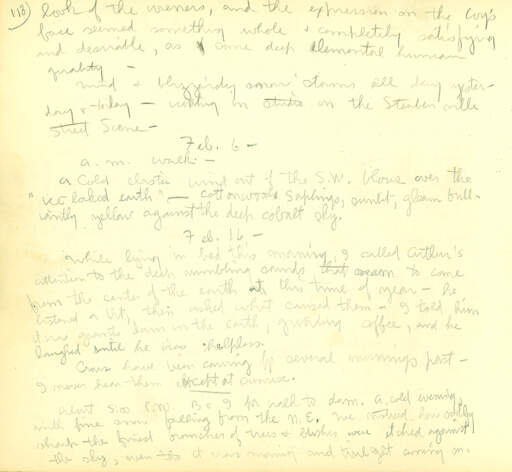 118) look of the weiners, and the expression on the boy's
face seemed something whole & completely satisfying
and desirable, as some deep elemental human
quality —
Wind & blizzardy snow storms all day yester-
day & today — working on studio on the Steuben ville
Street Scene —
Feb. 6 —
a.m. walk. —
A cold elastic wind out of the S.W. blows over the
"ice locked earth" — cottonwood saplings, sunlit, gleam brill-
iantly yellow against the deep cobalt sky.
Feb. 16 —
While lying in bed this morning, I called Arthur's
attention to the deep rumbling sounds that seem to come
from the center of the earth at this time of year — he
listened a bit, then asked what caused them — I told him
it was giants down in the earth, grinding coffee, and he
laughed until he was helpless.
Crows have been cawing for several mornings past —
I never hear them except at sunrise.
About 5:00 P.M. B & I go for walk to dam. A cold evening
with fine snow falling from the N.E. We noticed how oddly
sharp the finest branches of trees & bushes were etched against
the sky, even tho it was snowing and twilight coming on.